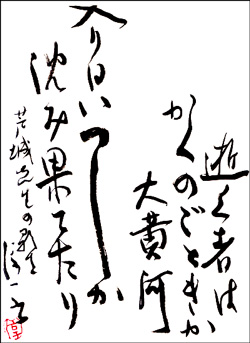 逝く者は
かくのごときか
大黄河
入り日いつしか
沈み果てたり
芒城先生の歌を